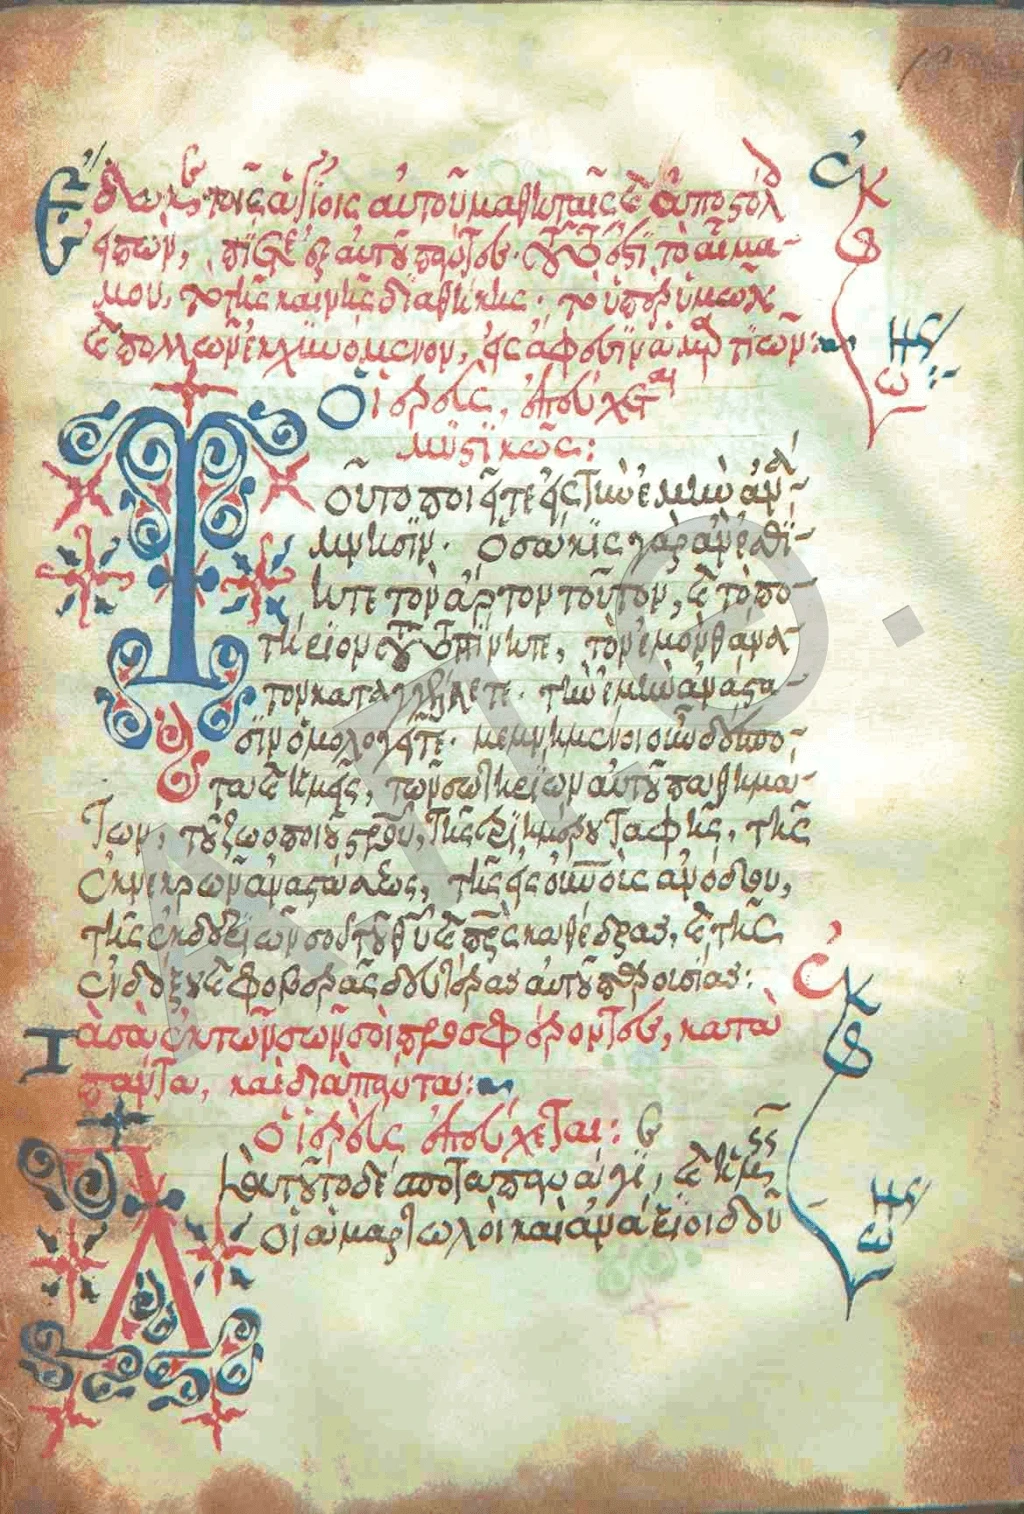 Ἔδωκε τοῖς ἁγίοις αὐτοῦ μαθηταῖς καὶ ἀποστόλ
εἰπών, πίετε ἐξ αὐτοῦ πάντες· τοῦτό ἐστι τὸ αἷμα
μου, τὸ τῆς καινῆς διαθήκης· τὸ ὑπὲρ ὑμῶν
καὶ πολλῶν ἐκχυνόμενον, εἰς ἄφεσιν ἁμαρτιῶν:
Ὁ ἱερεὺς, ἐπεύχεται
μυστικῶς:
Τοῦτο ποιεῖτε εἰς τὴν ἐμὴν ἀνά-
μνησιν· ὁσάκις γὰρ ἂν ἐσθί-
ητε τὸν ἄρτον τοῦτον, καὶ τὸ πο-
τήριον τοῦτο πίνητε, τὸν ἐμὸν θάνα-
τον καταγγέλετε· τὴν ἐμὴν ἀνάστα-
σιν ὁμολογεῖτε· μεμνημένοι οὖν δέσπο-
τα καὶ ἡμεῖς, τῶν σωτηρίων αὐτοῦ παθημά-
των, τοῦ ζωοποιοῦ σταυροῦ, τῆς τριημέρου ταφῆς, τῆς
ἐκ νεκρῶν ἀναστάσεως, τῆς εἰς οὐνοὺς ἀνόδου,
τῆς ἐκ δεξιῶν σου τοῦ θυ καὶ πρς καθέδρας, καὶ τῆς
ἐνδόξου καὶ φοβερᾶς δευτέρας αὐτοῦ παρουσίας:
Τὰ σὰ ἐκ τῶν σῶν σοὶ προσφέροντες, κατὰ
πάντα, καὶ διὰ πάντα:
Ὁ ἱερεὺς ἐπεύχεται:
Διὰ τοῦτο δέσποτα πανάγιε, καὶ ἡμεῖς
οἱ ἁμαρτωλοὶ καὶ ἀνάξιοι δοῦ